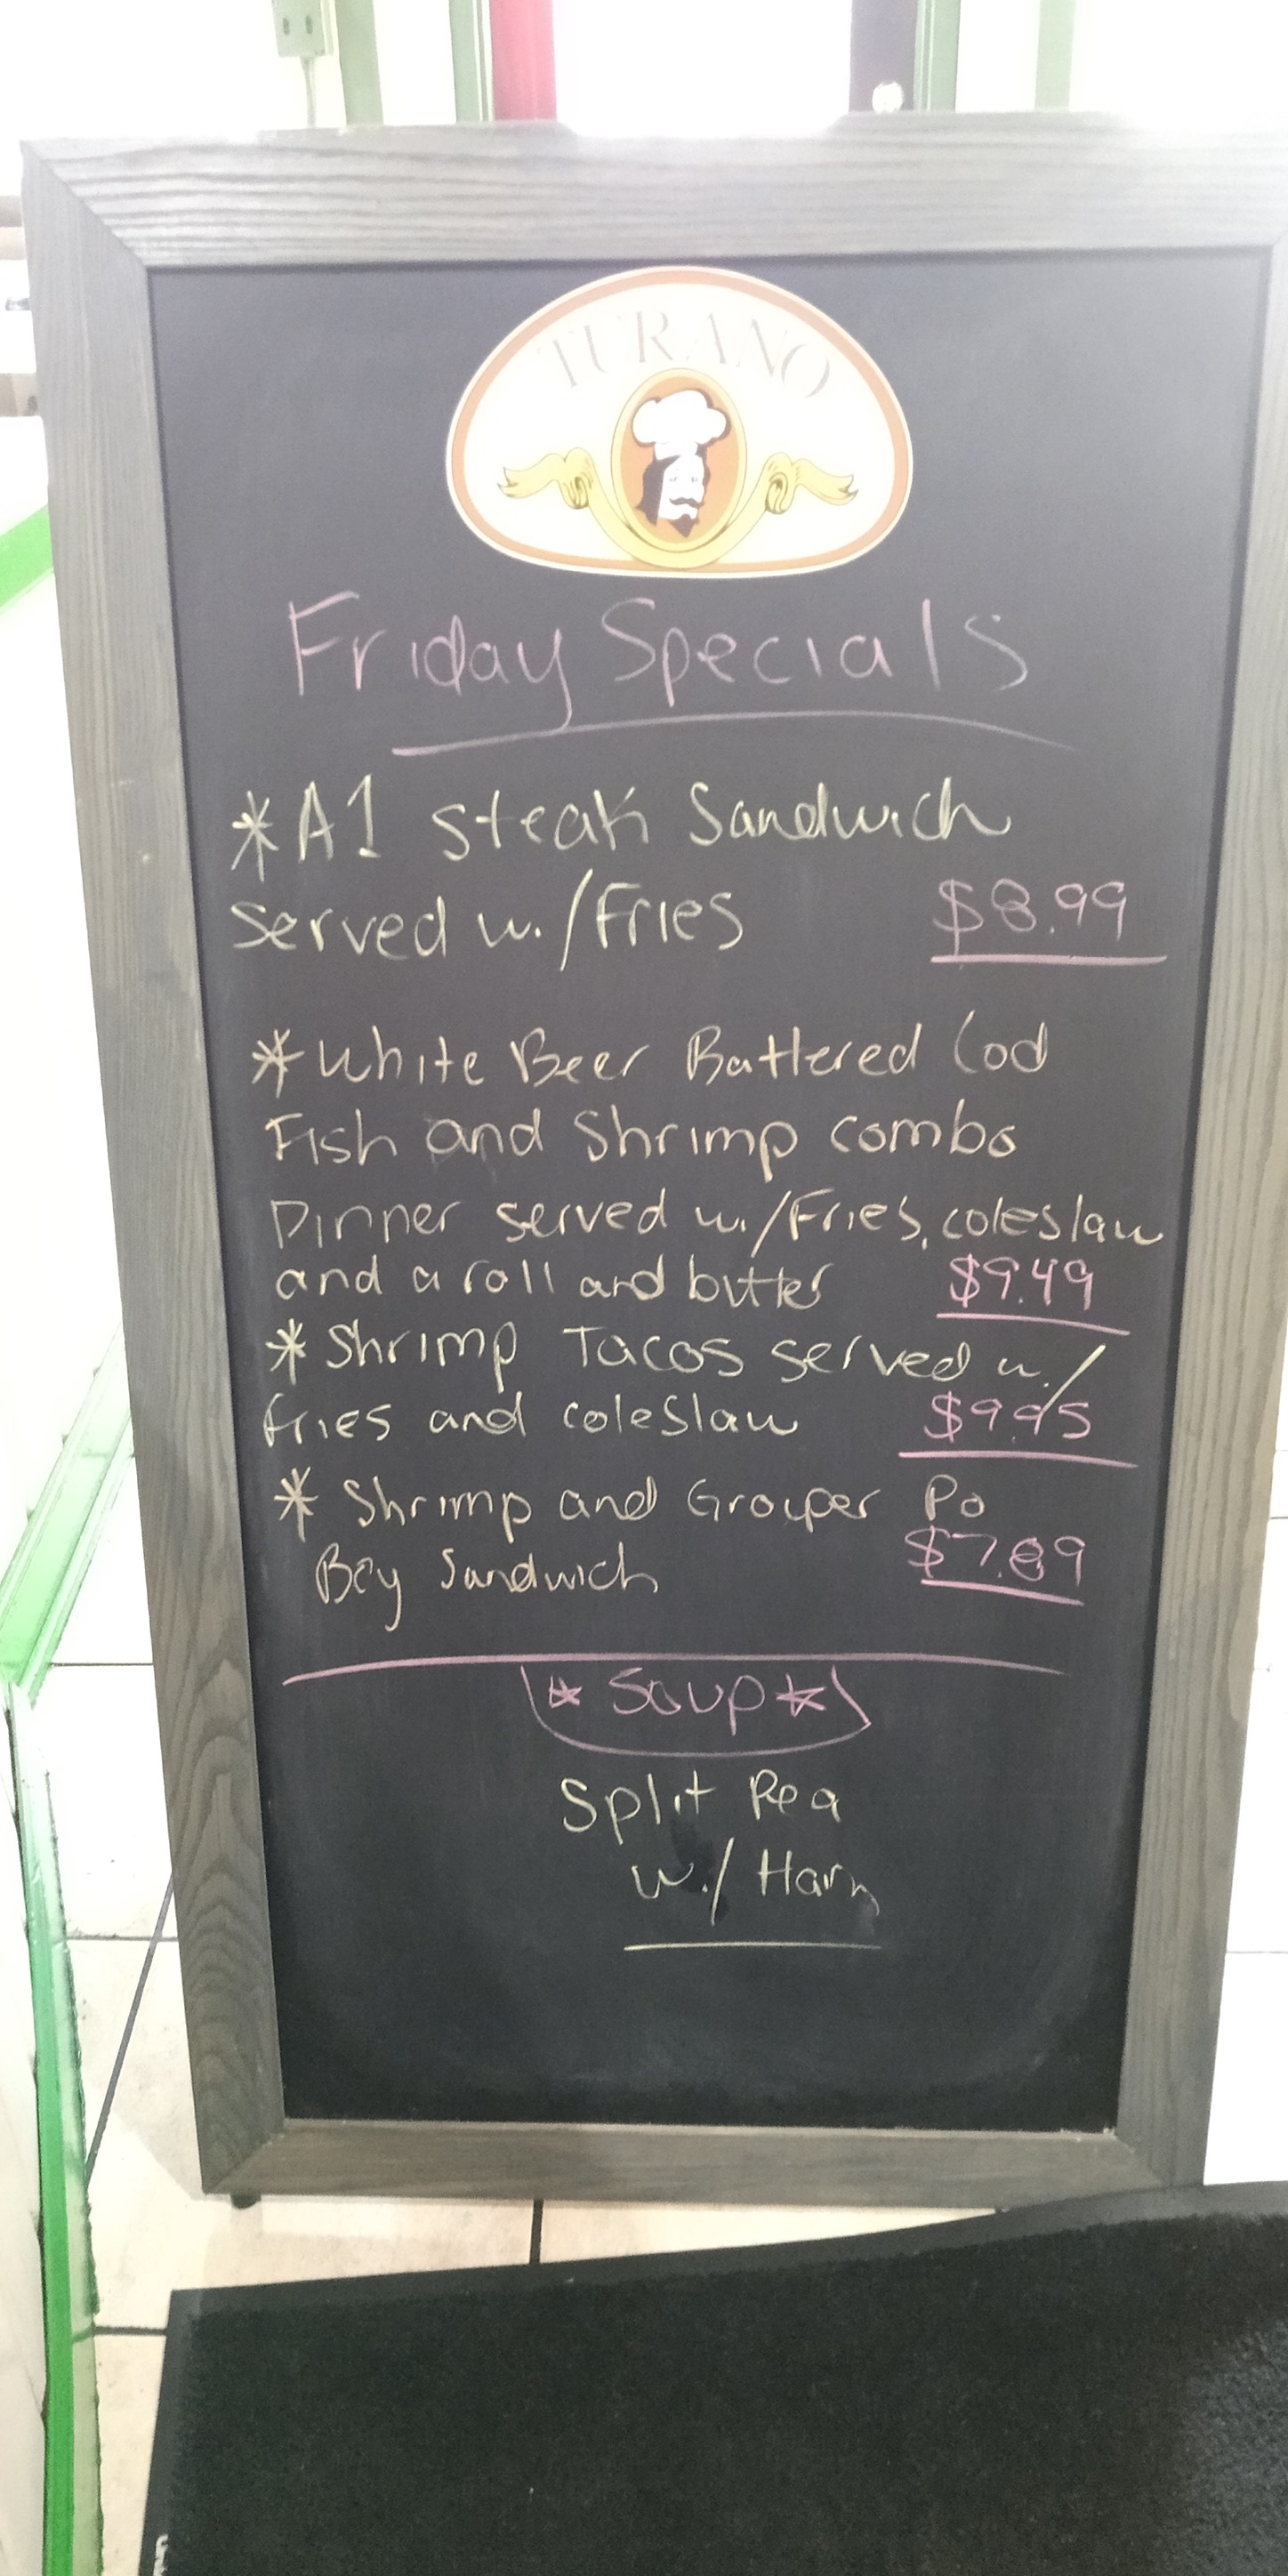 TURANO
Friday Specials
*A1 steak Sandwich
served w./Fries $8.99
*White Beer Battered Cod
Fish and Shrimp combo
Dinner served w./Fries, coleslaw
and a roll and butter $9.49
*Shrimp Tacos served w./
fries and coleslaw $9.95
* Shrimp and Grouper Po
Boy Sandwich $7.89
* Soup *
Split Pea
w./ Ham